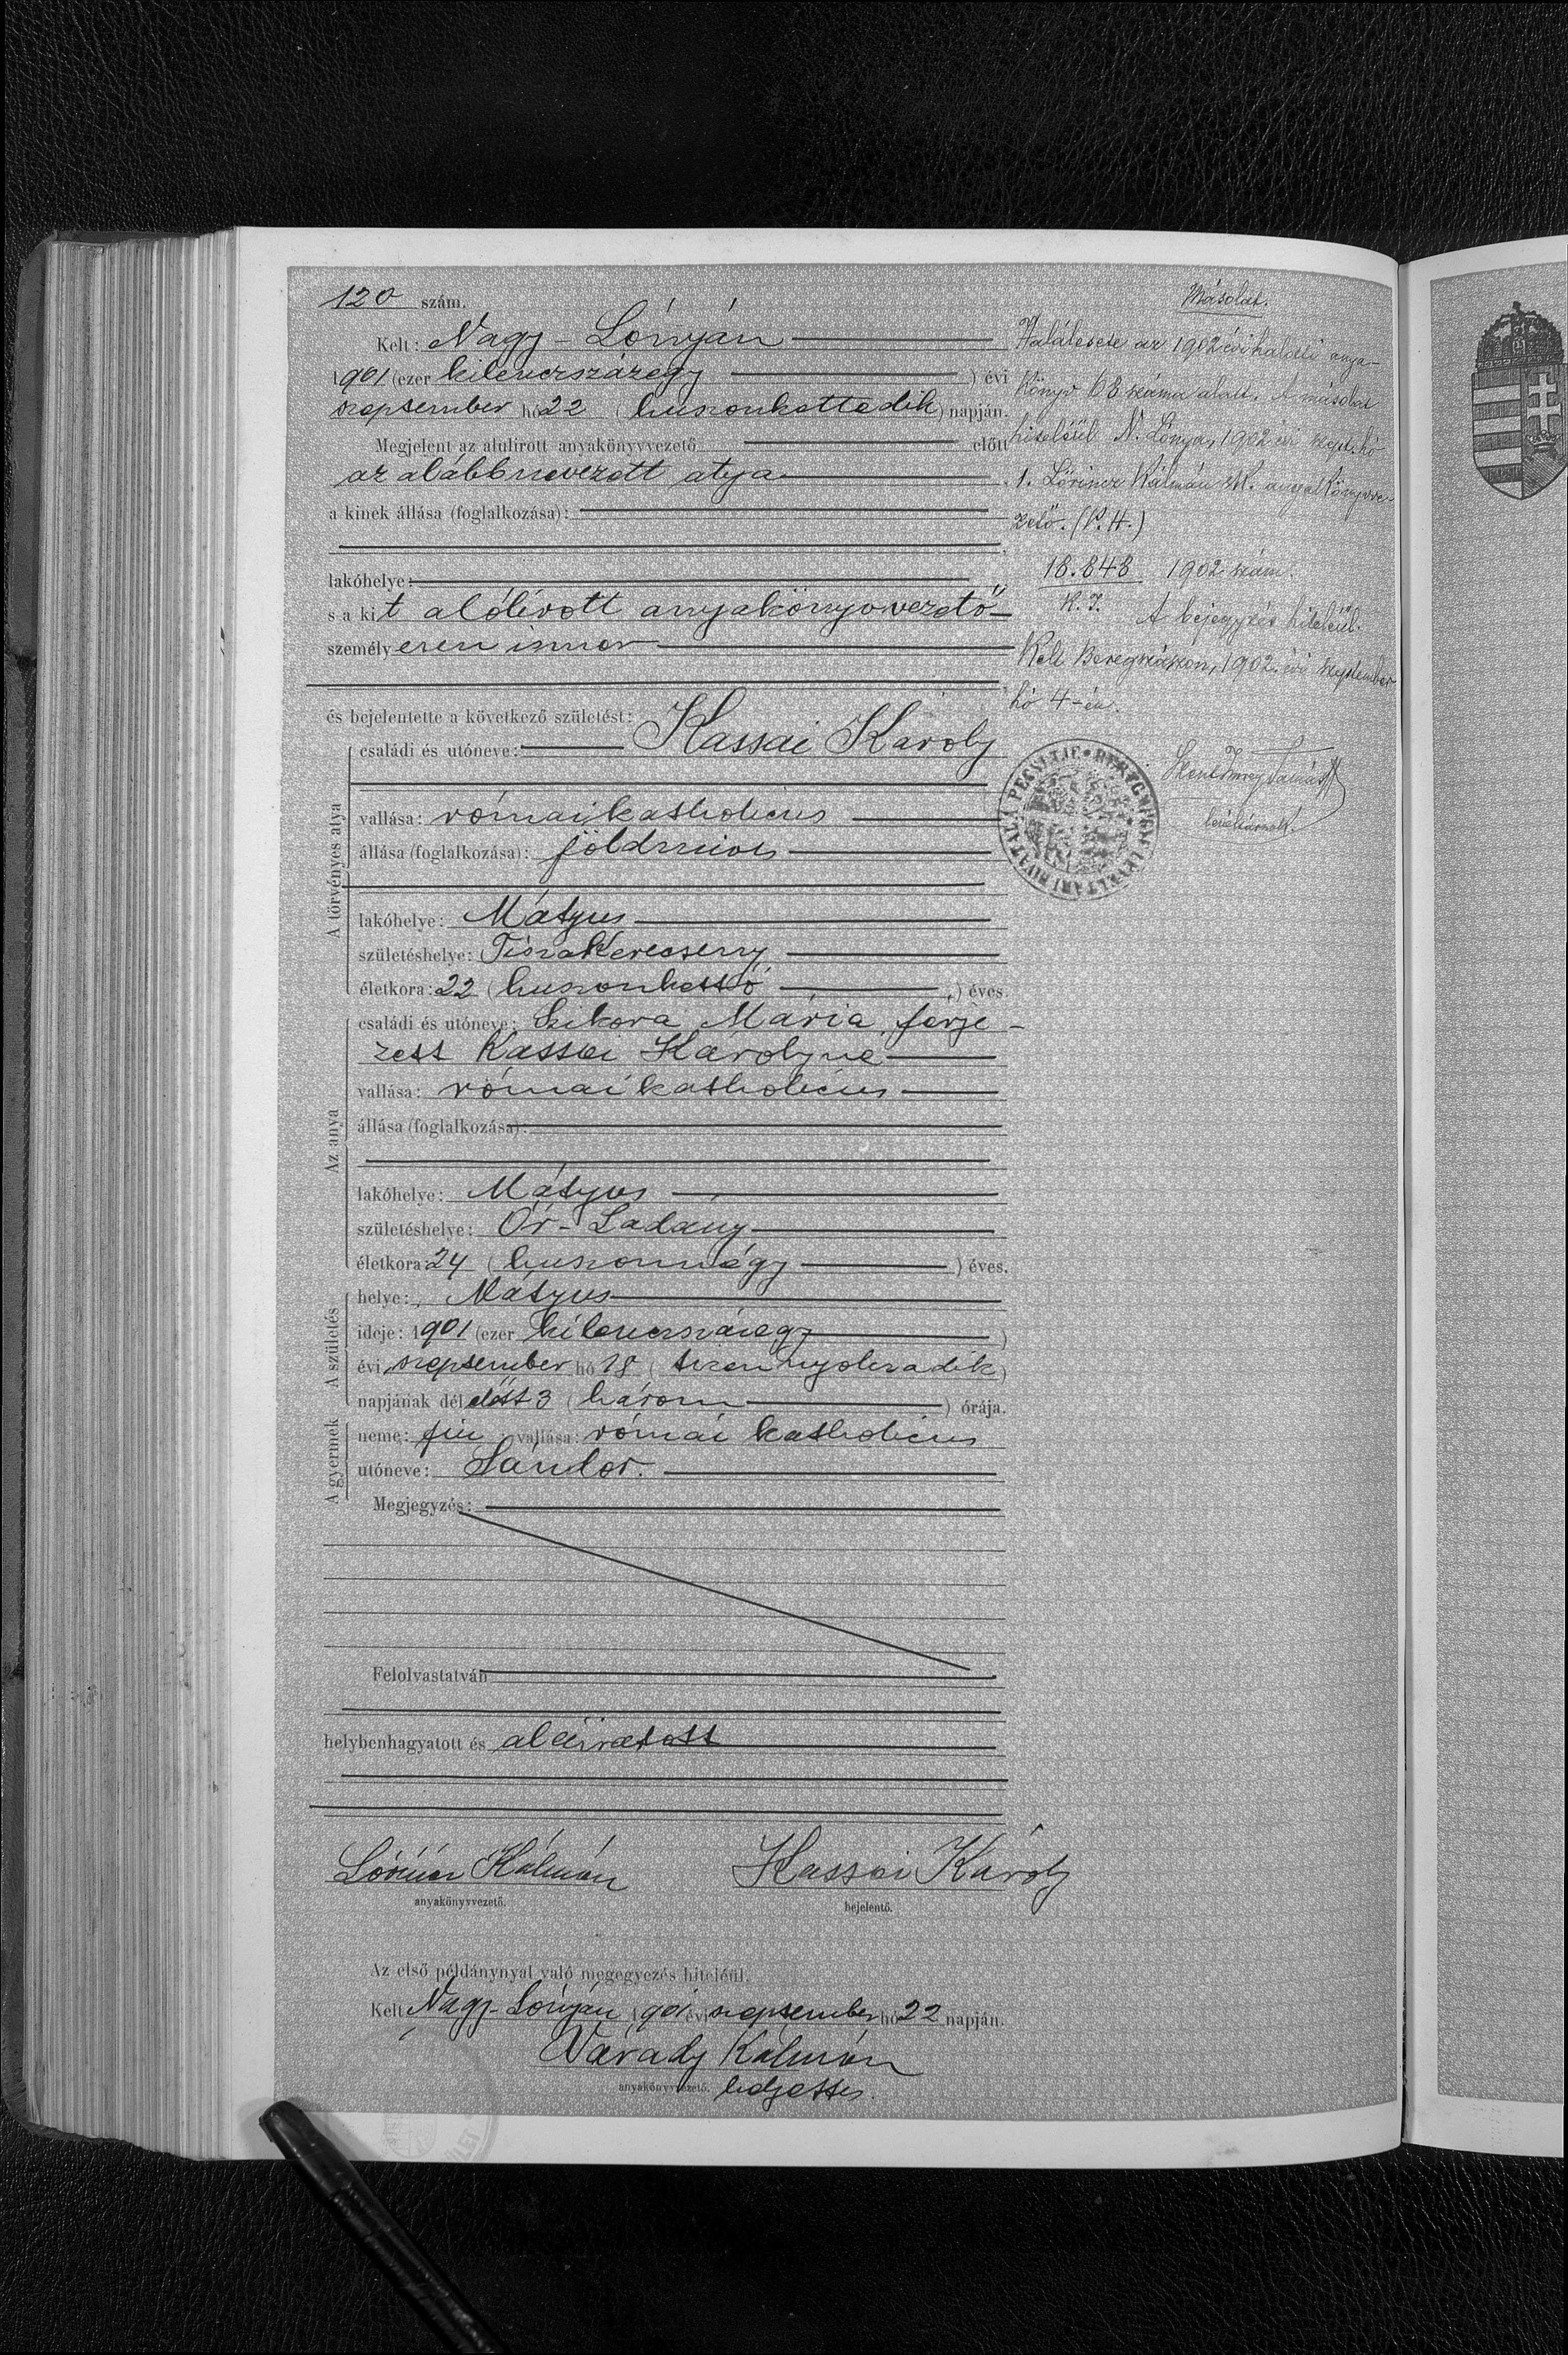 120 szám.
Kelt: Nagy-Lónyán
1901 (ezer kilenczszázegy ) évi
szeptember hó 22 (huszonkettedik) napján.
Megjelent az alulirott anyakönyvvezető előtt
az alább nevezett atya
a kinek állása (foglalkozása):
lakóhelye:
s a kit alólirott anyakönyvvezető
személyesen ismer
és bejelentette a következő születést:
A törvényes atya
családi és utóneve: Kassai Károly
vallása: római katholicus
állása (foglalkozása): földmives
lakóhelye: Mátyus
születéshelye: Tiszakerecseny
életkora: 22 (huszonkettő ) éves.
Az anya
családi és utóneve: Szikora Mária, férje-
zett Kassai Károlyné
vallása: római katholicus
állása (foglalkozása):
lakóhelye: Mátyus
születéshelye: Őr-Ladany
életkora: 24 (huszonnégy ) éves.
A születés
helye: Mátyus
ideje: 1901 (ezer kilenczszázegy )
évi szeptember hó 18 (tizennyolczadik)
napjának délelőtt 3 (három ) órája.
A gyermek
neme: fiu; vallása: római katholicus
utóneve: Sándor.
Megjegyzés:
Felolvastatván
helybenhagyatott és aláiratott
Lőrincz Kálmán Kassai Károly
anyakönyvvezető. bejelentő.
Az első példánynyal való megegyezés hiteléül.
Kelt Nagy-Lónyán 1901 évi szeptember hó 22 napján.
Várady Kálmán
anyakönyvvezető. helyettes.
Másolat.
Halálesete az 1902 évi halotti anya-
könyv 63 száma alatt. A másolat
hiteléül N. Lónya, 1902 évi szept. hó
1. Lőrincz Kálmán sk. anyakönyvve-
zető. (P.H.)
18.848 1902 szám
K.I.
A bejegyzés hiteléül.
Kelt Beregszászon, 1902. évi szeptember
hó 4-én.
levéltárnok.